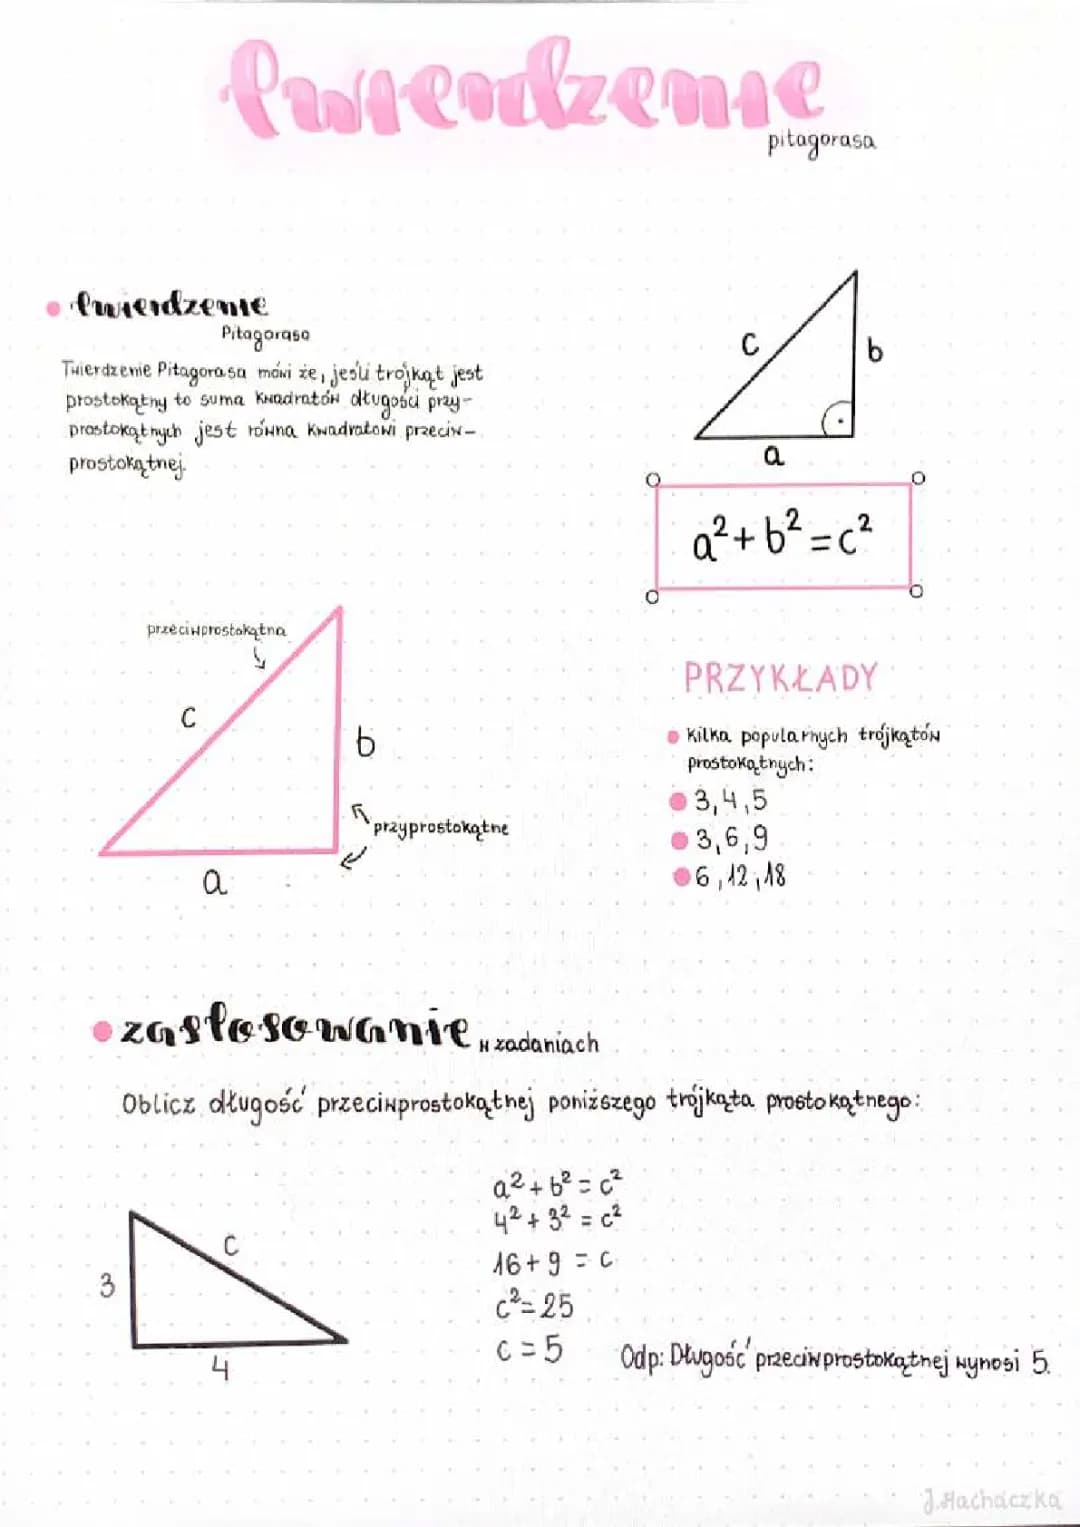 Twierdzenie
pitagorasa
Twierdzenie
Pitagorasa
Twierdzenie Pitagorasa mówi że, jeśli trójkąt jest
prostokątny to suma kwadratów długości przy-
prostokątnych jest równa kwadratowi przeciw-
prostokątnej.
c
b
a
a²+b²=c²
przeciwprostokątna
c
b
przyprostokątne
a
PRZYKŁADY
Kilka popularnych trójkątów
prostokątnych:
3,4,5
3,6,9
6,12,18
zastosowanie w zadaniach
Oblicz długość przeciwprostokątnej poniższego trójkąta prostokątnego:
3
c
4
a²+b²=c²
4²+3²=c²
16+9=c
c²=25
c=5
Odp: Długość przeciwprostokątnej wynosi 5.
J.Machaczka